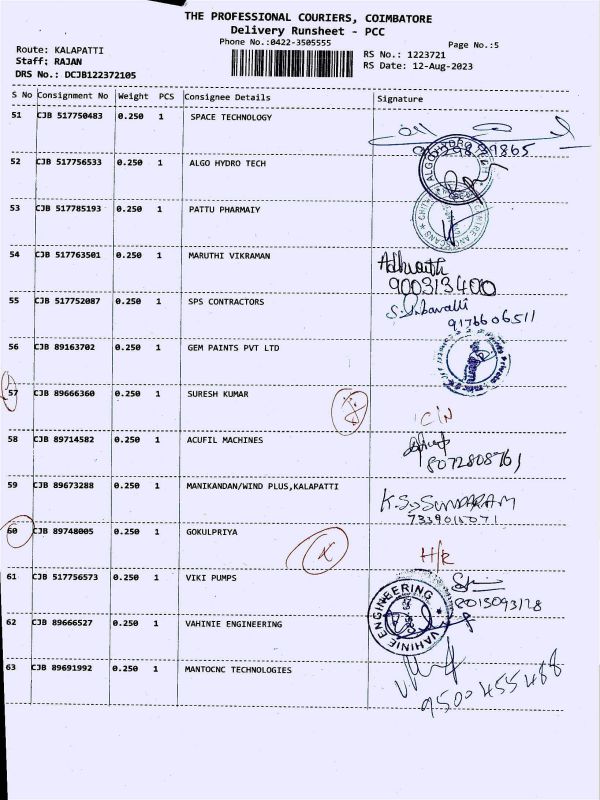 THE PROFESSIONAL COURIERS, COIMBATORE
Delivery Runsheet - PCC
Phone No.:0422-3505555
Page No.:5
Route: KALAPATTI
Staff: RAJAN
DRS No.: DCJB122372105
RS No.: 1223721
RS Date: 12-Aug-2023
S No Consignment No Weight PCS Consignee Details Signature
51 CJB 517750483 0.250 1 SPACE TECHNOLOGY
52 CJB 517756533 0.250 1 ALGO HYDRO TECH
53 CJB 517785193 0.250 1 PATTU PHARMAIY
54 CJB 517763501 0.250 1 MARUTHI VIKRAMAN
900313400
55 CJB 517752087 0.250 1 SPS CONTRACTORS
9176606511
56 CJB 89163702 0.250 1 GEM PAINTS PVT LTD
57 CJB 89666360 0.250 1 SURESH KUMAR
C/N
58 CJB 89714582 0.250 1 ACUFIL MACHINES
8072808761
59 CJB 89673288 0.250 1 MANIKANDAN/WIND PLUS,KALAPATTI
K.S. SUNDARAM
60 CJB 89748005 0.250 1 GOKULPRIYA
X H/R
61 CJB 517756573 0.250 1 VIKI PUMPS
8015093128
62 CJB 89666527 0.250 1 VAHINIE ENGINEERING
VAHINIE ENGINEERING
63 CJB 89691992 0.250 1 MANTOCNC TECHNOLOGIES
9500455488